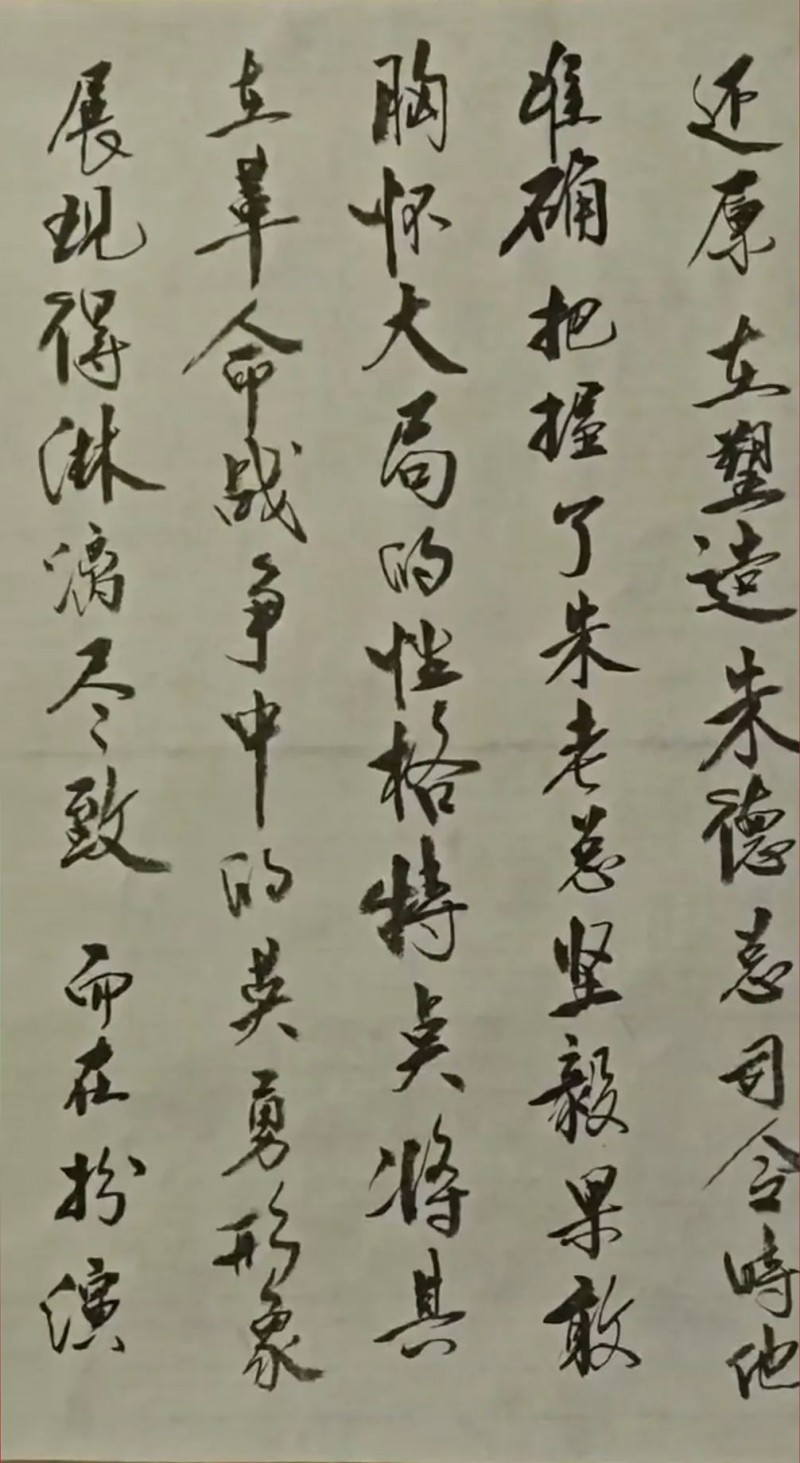 还原 在塑造朱德总司令時他
准确把握了朱老总坚毅果敢
胸怀大局的性格特点将其
在革命战争中的英勇形象
展现得淋漓尽致 而在扮演